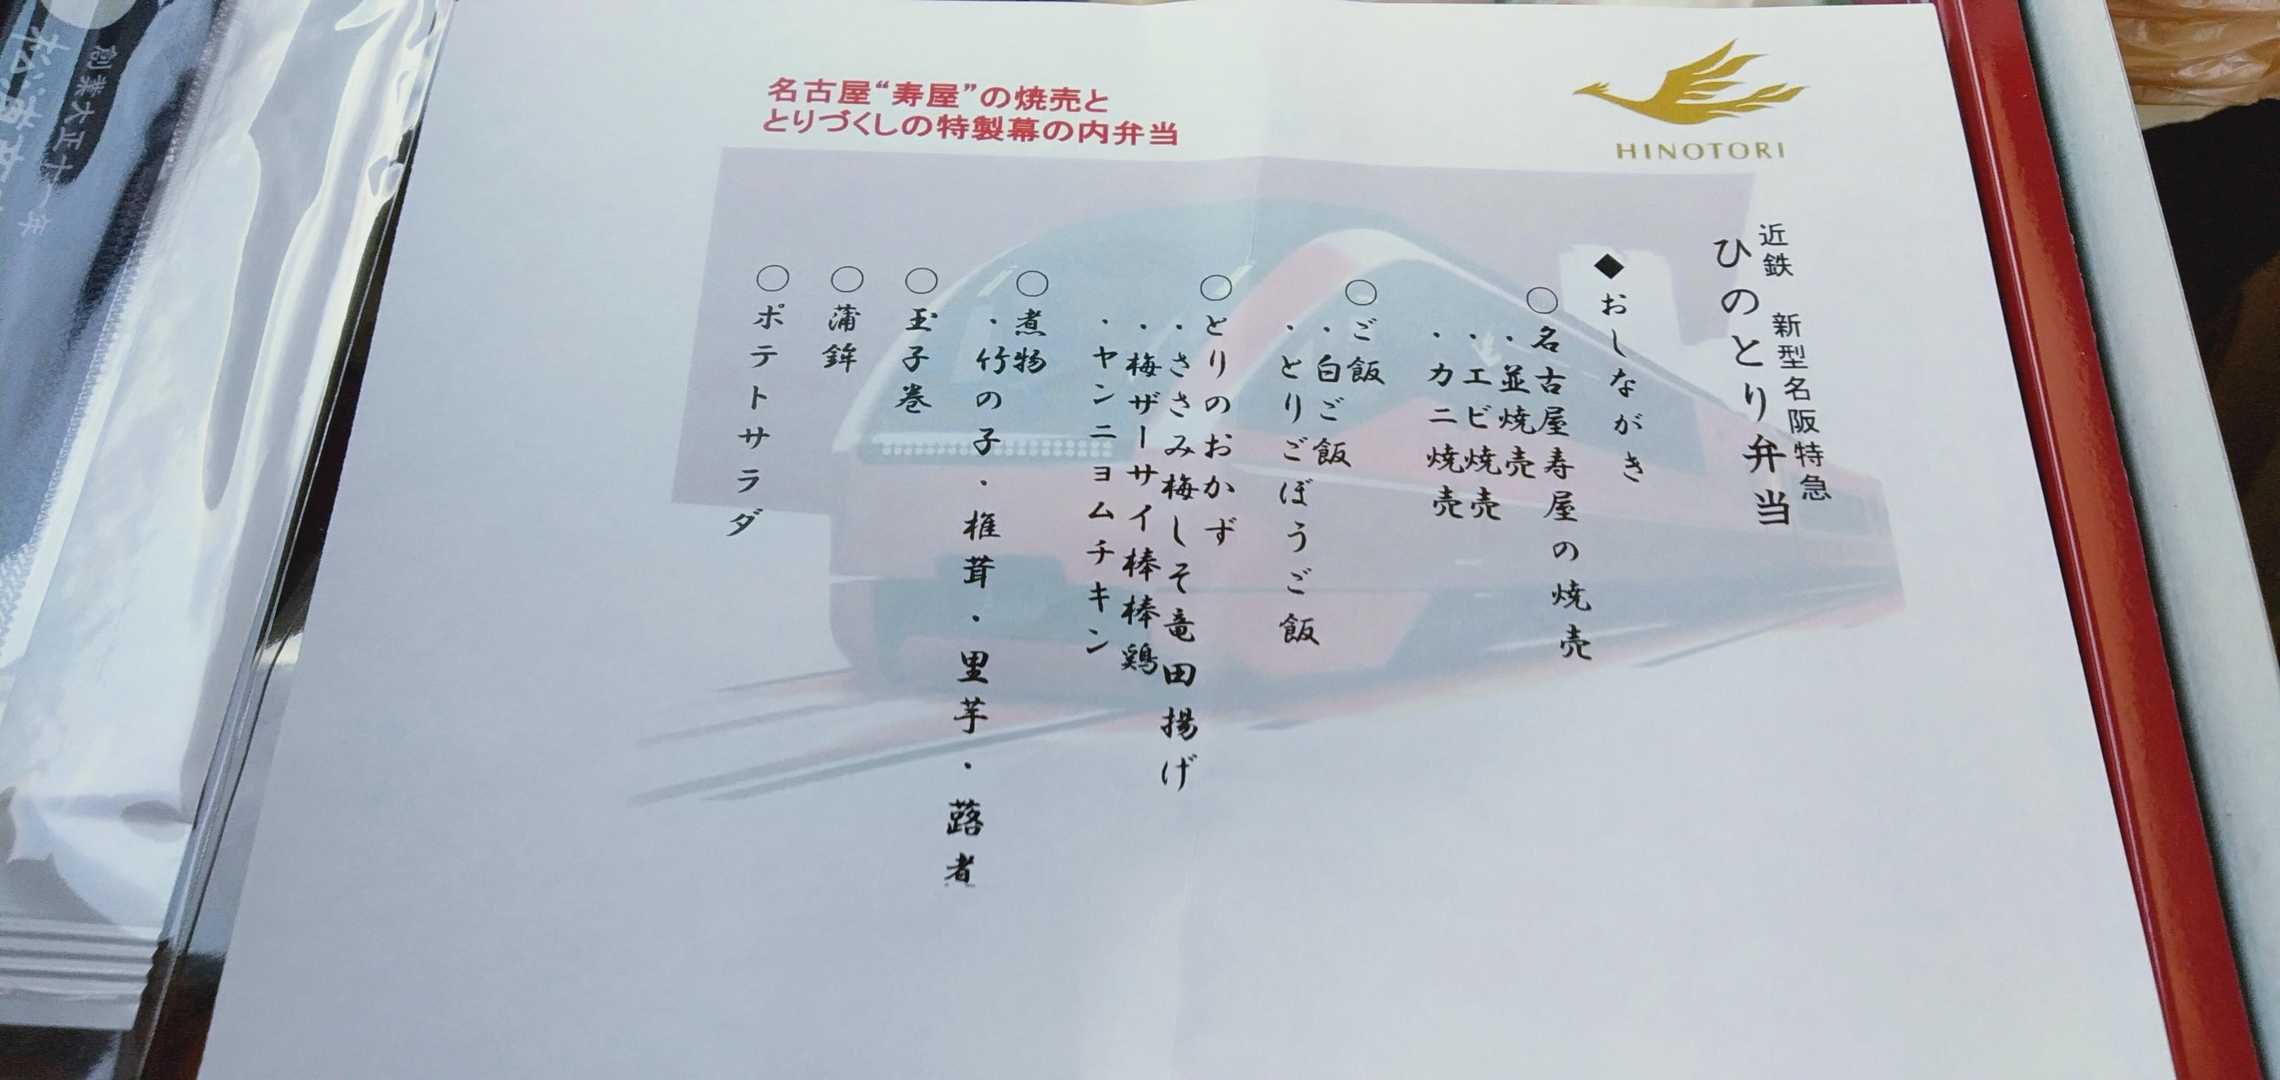 名古屋“寿屋”の焼売と
とりづくしの特製幕の内弁当
HINOTORI
近鉄 新型名阪特急
ひのとり弁当
◆おしながき
○名古屋寿屋の焼売
・並焼売
・エビ焼売
・カニ焼売
○ご飯
・白ご飯
・とりごぼうご飯
○とりのおかず
・ささみ梅しそ竜田揚げ
・梅ザーサイ棒棒鶏
・ヤンニョムチキン
○煮物
・竹の子・椎茸・里芋・蕗
○玉子巻
○蒲鉾
○ポテトサラダ
創業大正十一年